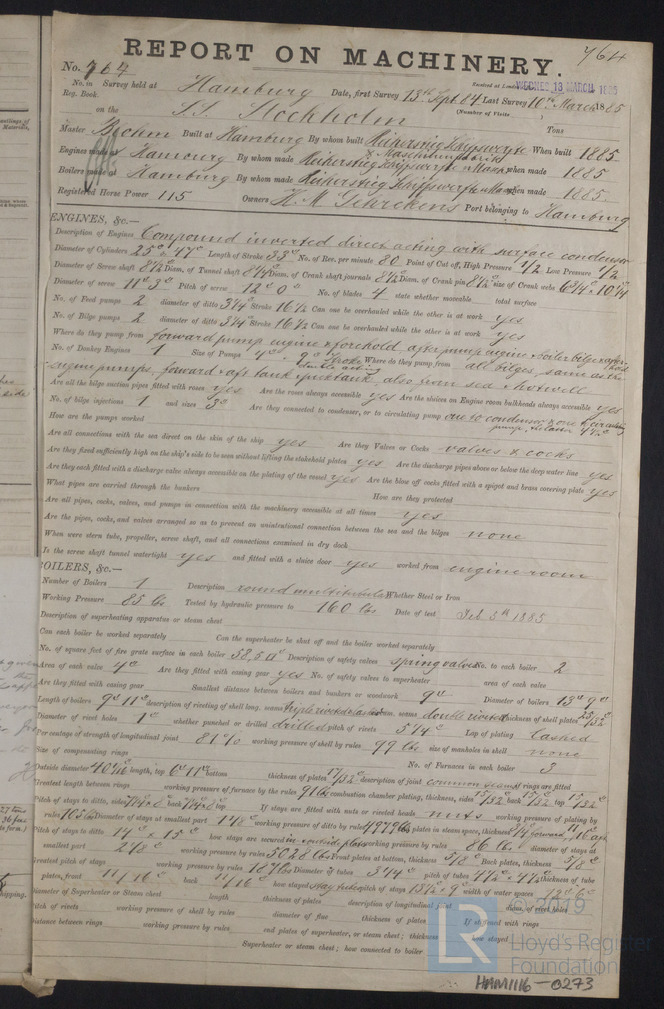 764
REPORT ON MACHINERY.
No. 764
Received at London WEDNES 18 MARCH 1885
No. in Survey held at Hamburg Date, first Survey 13th Sept 84 Last Survey 10th March 1885
Reg. Book. (Number of Visits
on the S.S. Stockholm Tons
Master Boehm Built at Hamburg By whom built When built 1885
Engines made at Hamburg By whom made when made 1885
Boilers made at Hamburg By whom made when made 1885
Registered Horse Power 115 Owners H. M. Gehrckens Port belonging to Hamburg
ENGINES, &c.—
Description of Engines Compound inverted direct acting with surface condenser
Diameter of Cylinders 25" & 47" Length of Stroke 33" No. of Rev. per minute 80 Point of Cut off, High Pressure 1/2 Low Pressure 1/2
Diameter of Screw shaft 8 1/2 Diam. of Tunnel shaft 8 1/4 Diam. of Crank shaft journals 8 1/2 Diam. of Crank pin 8 1/2 size of Crank webs 6 3/4 x 10 1/4
Diameter of screw 11' 3" Pitch of screw 12' 0" No. of blades 4 state whether moveable total surface
No. of Feed pumps 2 diameter of ditto 3 1/4 Stroke 16 1/2 Can one be overhauled while the other is at work yes
No. of Bilge pumps 2 diameter of ditto 3 1/4 Stroke 16 1/2 Can one be overhauled while the other is at work yes
Where do they pump from forward pump engine & forehold after pump engine & boiler bilge & after hold
No. of Donkey Engines 1 Size of Pumps 4" x 9" stroke double acting Where do they pump from all bilges, same as the
engine pumps, forward & aft tank & peak tank, also from sea & hotwell
Are all the bilge suction pipes fitted with roses yes Are the roses always accessible yes Are the sluices on Engine room bulkheads always accessible yes
No. of bilge injections 1 and sizes 3" Are they connected to condenser, or to circulating pump one to condenser & one to circulating
How are the pumps worked
Are all connections with the sea direct on the skin of the ship yes Are they Valves or Cocks valves & cocks
Are they fixed sufficiently high on the ship's side to be seen without lifting the stokehold plates yes Are the discharge pipes above or below the deep water line yes
Are they each fitted with a discharge valve always accessible on the plating of the vessel yes Are the blow off cocks fitted with a spigot and brass covering plate yes
What pipes are carried through the bunkers How are they protected
Are all pipes, cocks, valves, and pumps in connection with the machinery accessible at all times yes
Are the pipes, cocks, and valves arranged so as to prevent an unintentional connection between the sea and the bilges none
When were stern tube, propeller, screw shaft, and all connections examined in dry dock
Is the screw shaft tunnel watertight yes and fitted with a sluice door yes worked from engine room
OILERS, &c.—
Number of Boilers 1 Description round multitubular Whether Steel or Iron
Working Pressure 85 lbs Tested by hydraulic pressure to 160 lbs Date of test Feb 5th 1885
Description of superheating apparatus or steam chest
Can each boiler be worked separately Can the superheater be shut off and the boiler worked separately
No. of square feet of fire grate surface in each boiler 58,50 Description of safety valves spring valves No. to each boiler 2
Area of each valve 4" Are they fitted with casing gear yes No. of safety valves to superheater area of each valve
Are they fitted with casing gear Smallest distance between boilers and bunkers or woodwork 9" Diameter of boilers 13' 9"
Length of boilers 9' 11" description of riveting of shell long. seams circum. seams double riveted thickness of shell plates 25/32"
Diameter of rivet holes 1" whether punched or drilled drilled pitch of rivets 3 3/4" Lap of plating lashed
Percentage of strength of longitudinal joint 81% working pressure of shell by rules 99 lbs size of manholes in shell none
Size of compensating rings No. of Furnaces in each boiler 3
Outside diameter 40 1/16" length, top 6' 11" bottom thickness of plates 17/32" description of joint common seams if rings are fitted
Greatest length between rings working pressure of furnace by the rules 91 lbs combustion chamber plating, thickness, sides 15/32" back 15/32" top 15/32"
Pitch of stays to ditto, sides back top If stays are fitted with nuts or riveted heads nuts working pressure of plating by
rules 105 lbs Diameter of stays at smallest part 1 1/8" working pressure of ditto by rules plates in steam space, thickness
Pitch of stays to ditto 14" x 15" how stays are secured working pressure by rules 86 lbs diameter of stays at
smallest part 2 1/8" working pressure by rules Front plates at bottom, thickness 5/8" Back plates, thickness 5/8"
Greatest pitch of stays working pressure by rules 187 lbs Diameter of tubes 3 3/4" pitch of tubes thickness of tube
plates, front 11/16" back 11/16" how stayed stay tubes pitch of stays width of water spaces
Diameter of Superheater or Steam chest length thickness of plates description of longitudinal joint diam. of rivet holes
Pitch of rivets working pressure of shell by rules diameter of flue thickness of plates If stiffened with rings
Distance between rings working pressure by rules end plates of superheater, or steam chest; thickness how stayed
Superheater or steam chest; how connected to boiler
© 2019
LR
Lloyd's Register
Foundation
HMM1116-0273